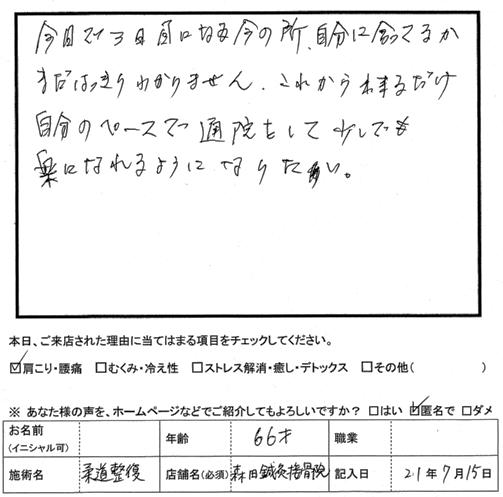 今日で3日目になる今の所、自分に合ってるか
まだはっきりわかりません。これから出来るだけ
自分のペースで通院をして少しでも
楽になれるようになりたい。
本日、ご来店された理由に当てはまる項目をチェックしてください。
☑肩こり・腰痛 □むくみ・冷え性 □ストレス解消・癒し・デトックス □その他( )
※ あなた様の声を、ホームページなどでご紹介してもよろしいですか? □はい ☑匿名で □ダメ
お名前(イニシャル可) 年齢 66才 職業
施術名 柔道整復 店舗名(必須) 森田鍼灸接骨院 記入日 21年7月15日